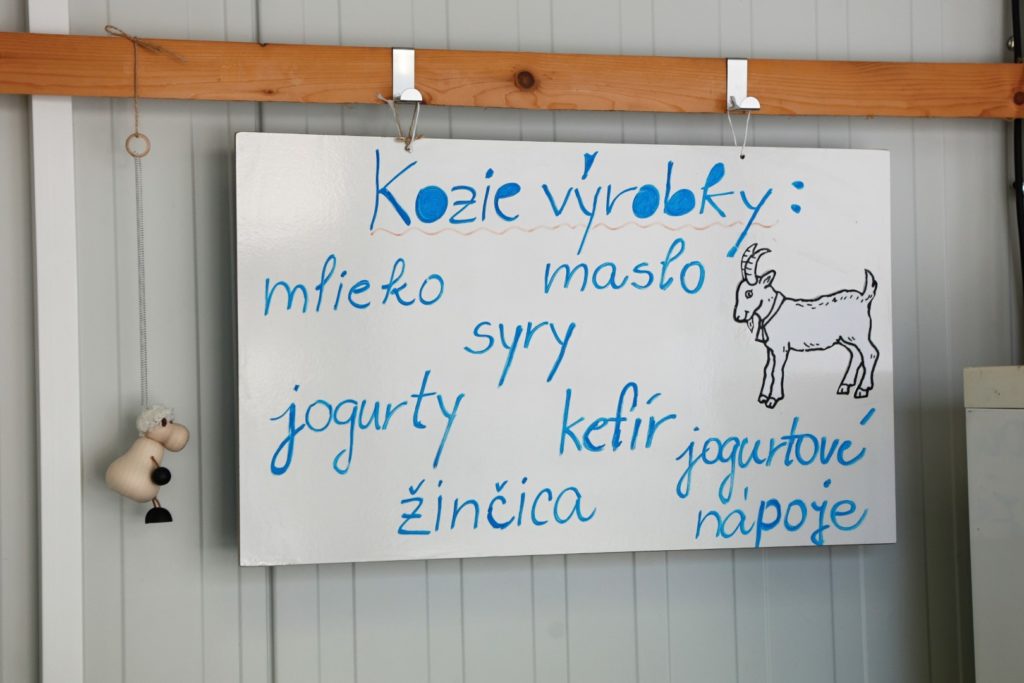 Kozie výrobky:
mlieko maslo
syry
jogurty kefír jogurtové
žinčica nápoje